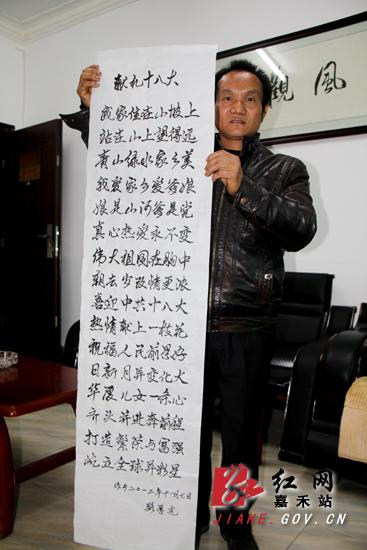 献礼十八大
我家住在山坡上
站在山上望得远
青山绿水家乡美
我爱家乡爱爹娘
娘是山河爹是党
真心热爱永不变
伟大祖国在胸中
朝去夕改情更浓
喜迎中共十八大
热情献上一枝花
祝福人民前景好
日新月异变化大
华夏儿女一条心
齐头并进奔前程
打造繁荣与富强
屹立全球异彩星
作于二〇一二年十一月七日
觀風
红网
嘉禾站
JIAHE.GOV.CN